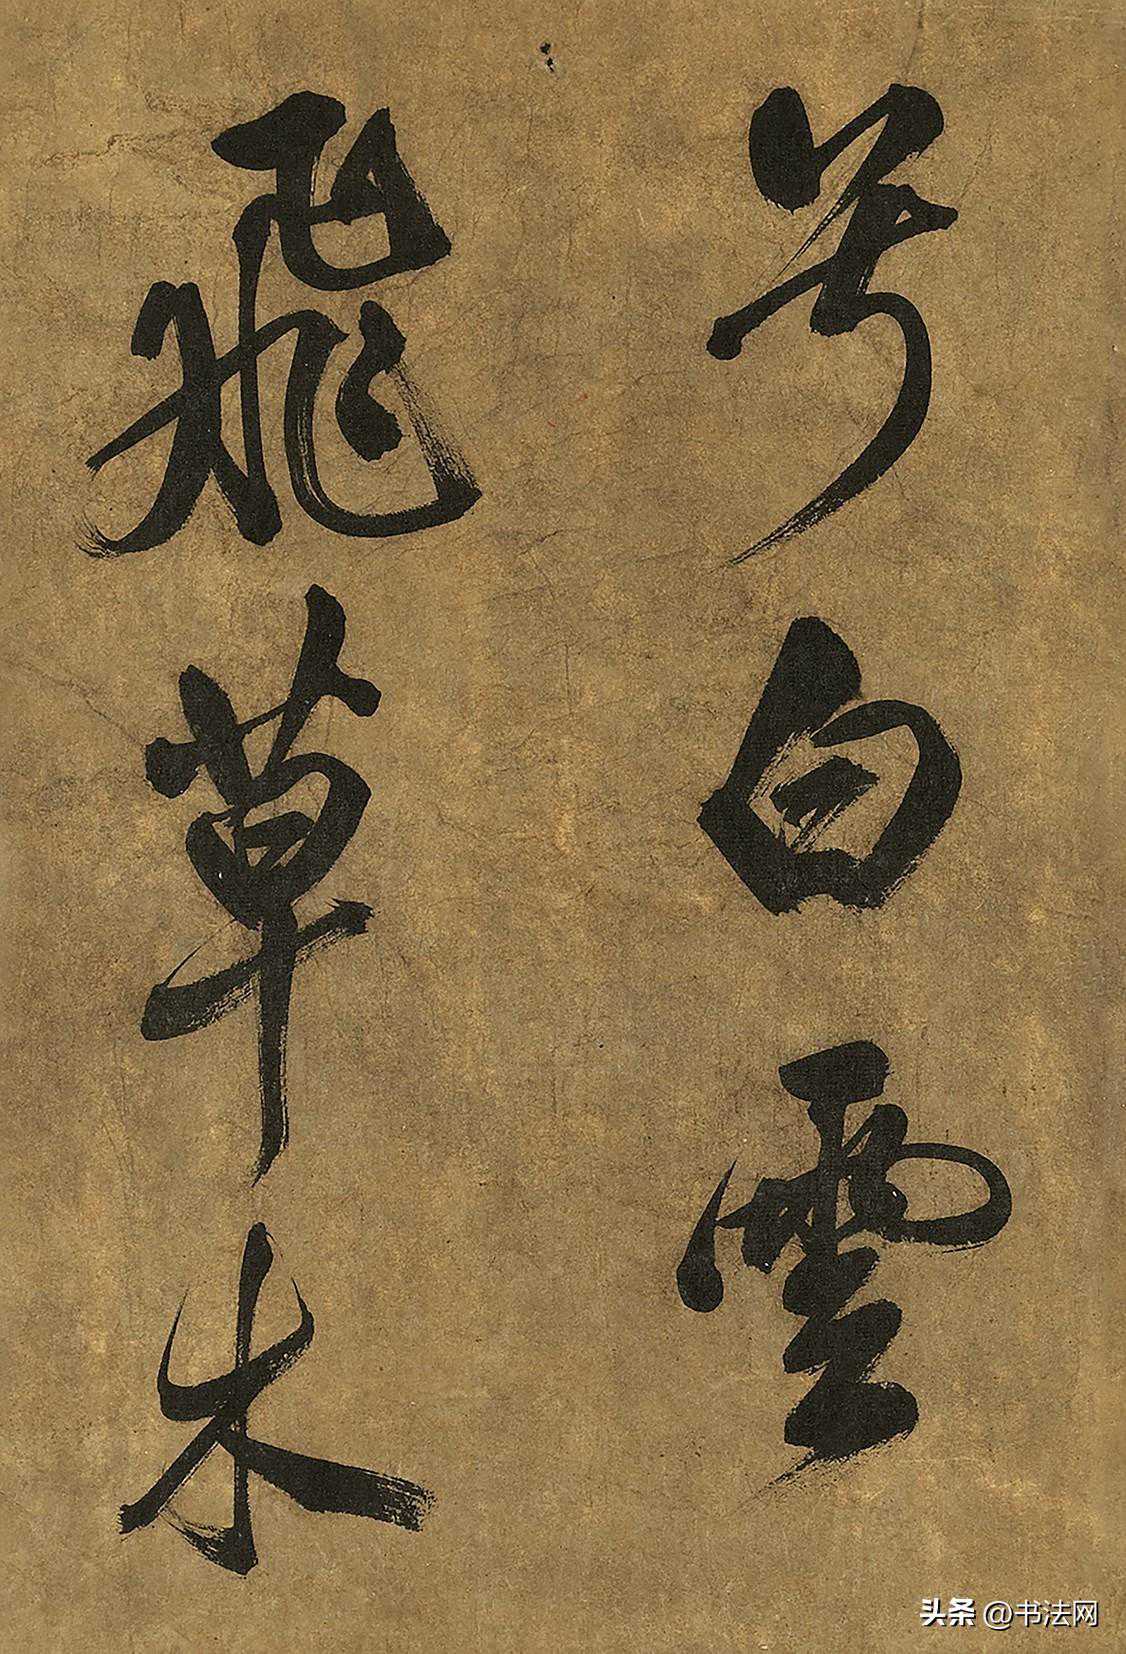 兮白雲
飛草木
头条 @书法网